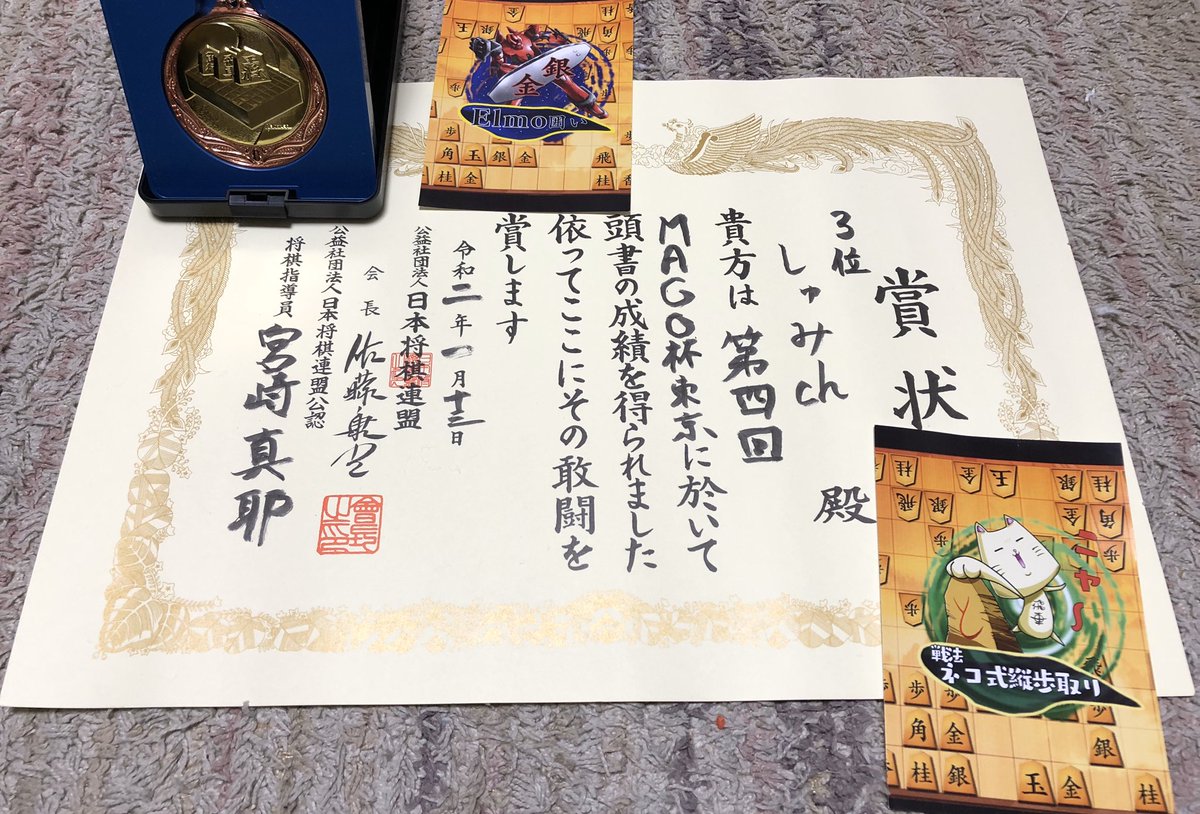 賞状
3位
しゅみch 殿
貴方は第四回
MAGO杯東京に於いて
頭書の成績を得られました
依ってここにその敢闘を
賞します
令和二年一月十三日
公益社団法人日本将棋連盟
会長 佐藤康光
公益社団法人日本将棋連盟公認
将棋指導員 宮崎真耶
會長之印
金
銀
Elmo囲い
ニャ〜
戦法
ネコ式縦歩取り